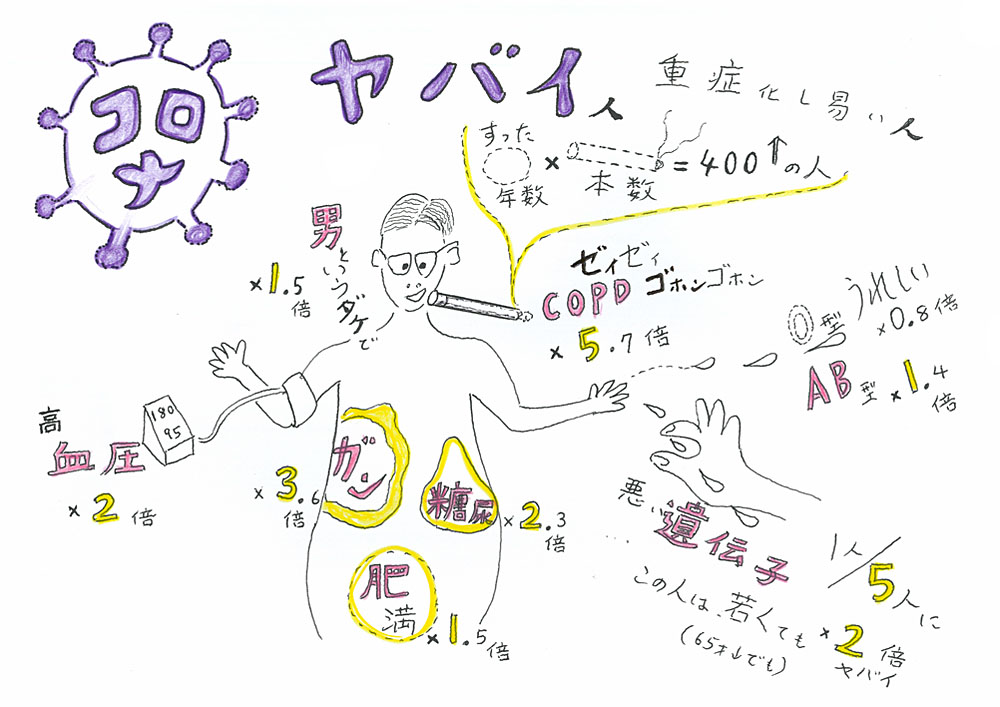 コロナ
ヤバイ人
重症化し易い人
すった
年数 × 本数 = 400↑の人
男というダケで
×1.5倍
ゼイゼイ
COPD ゴホンゴホン
×5.7倍
O型 うれしい
×0.8倍
AB型 ×1.4倍
高
血圧
180
95
×2倍
ガン
×3.6倍
糖尿
×2.3倍
肥満
×1.5倍
悪い遺伝子
1人/5人に
この人は、若くても
(65才↓でも)
×2倍
ヤバイ